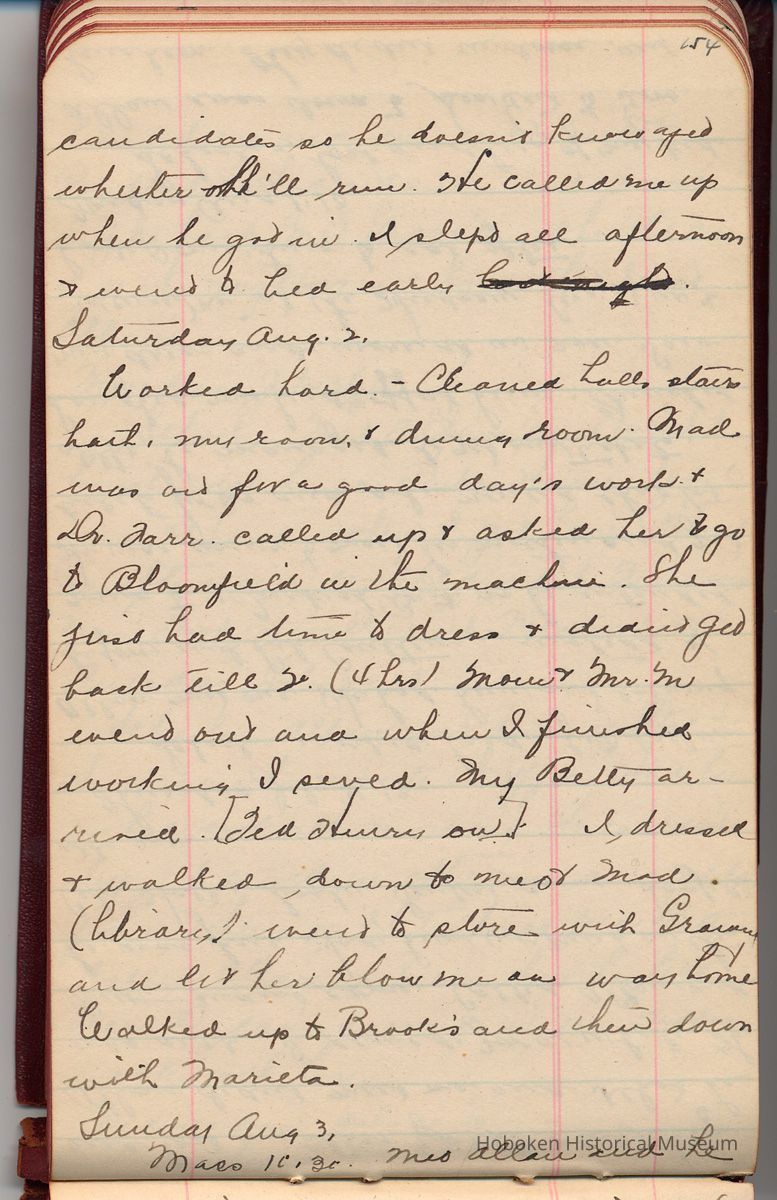 154
candidates so he doesn't know
whether he'll run. He called me up
when he got in. I slept all afternoon
& went to bed early last night.
Saturday Aug. 2.
Worked hard. - Cleaned halls stairs
bath, my room, & dining room. Mad
was out for a good day's work &
Dr. Farr. called up & asked her to go
to Bloomfield in the machine. She
just had time to dress & didn't get
back till 2. (4 hrs) Mom & Mr. M
went out and when I finished
working I sewed. My Betty ar-
rived. [Ted Henry out] I, dressed
& walked down to meet Mad.
(library) went to store with Granny
and let her blow me on way home
Walked up to Brook's and then down
with Marieta.
Sunday Aug 3,
Mass 10.30. Met Allan and he
Hoboken Historical Museum